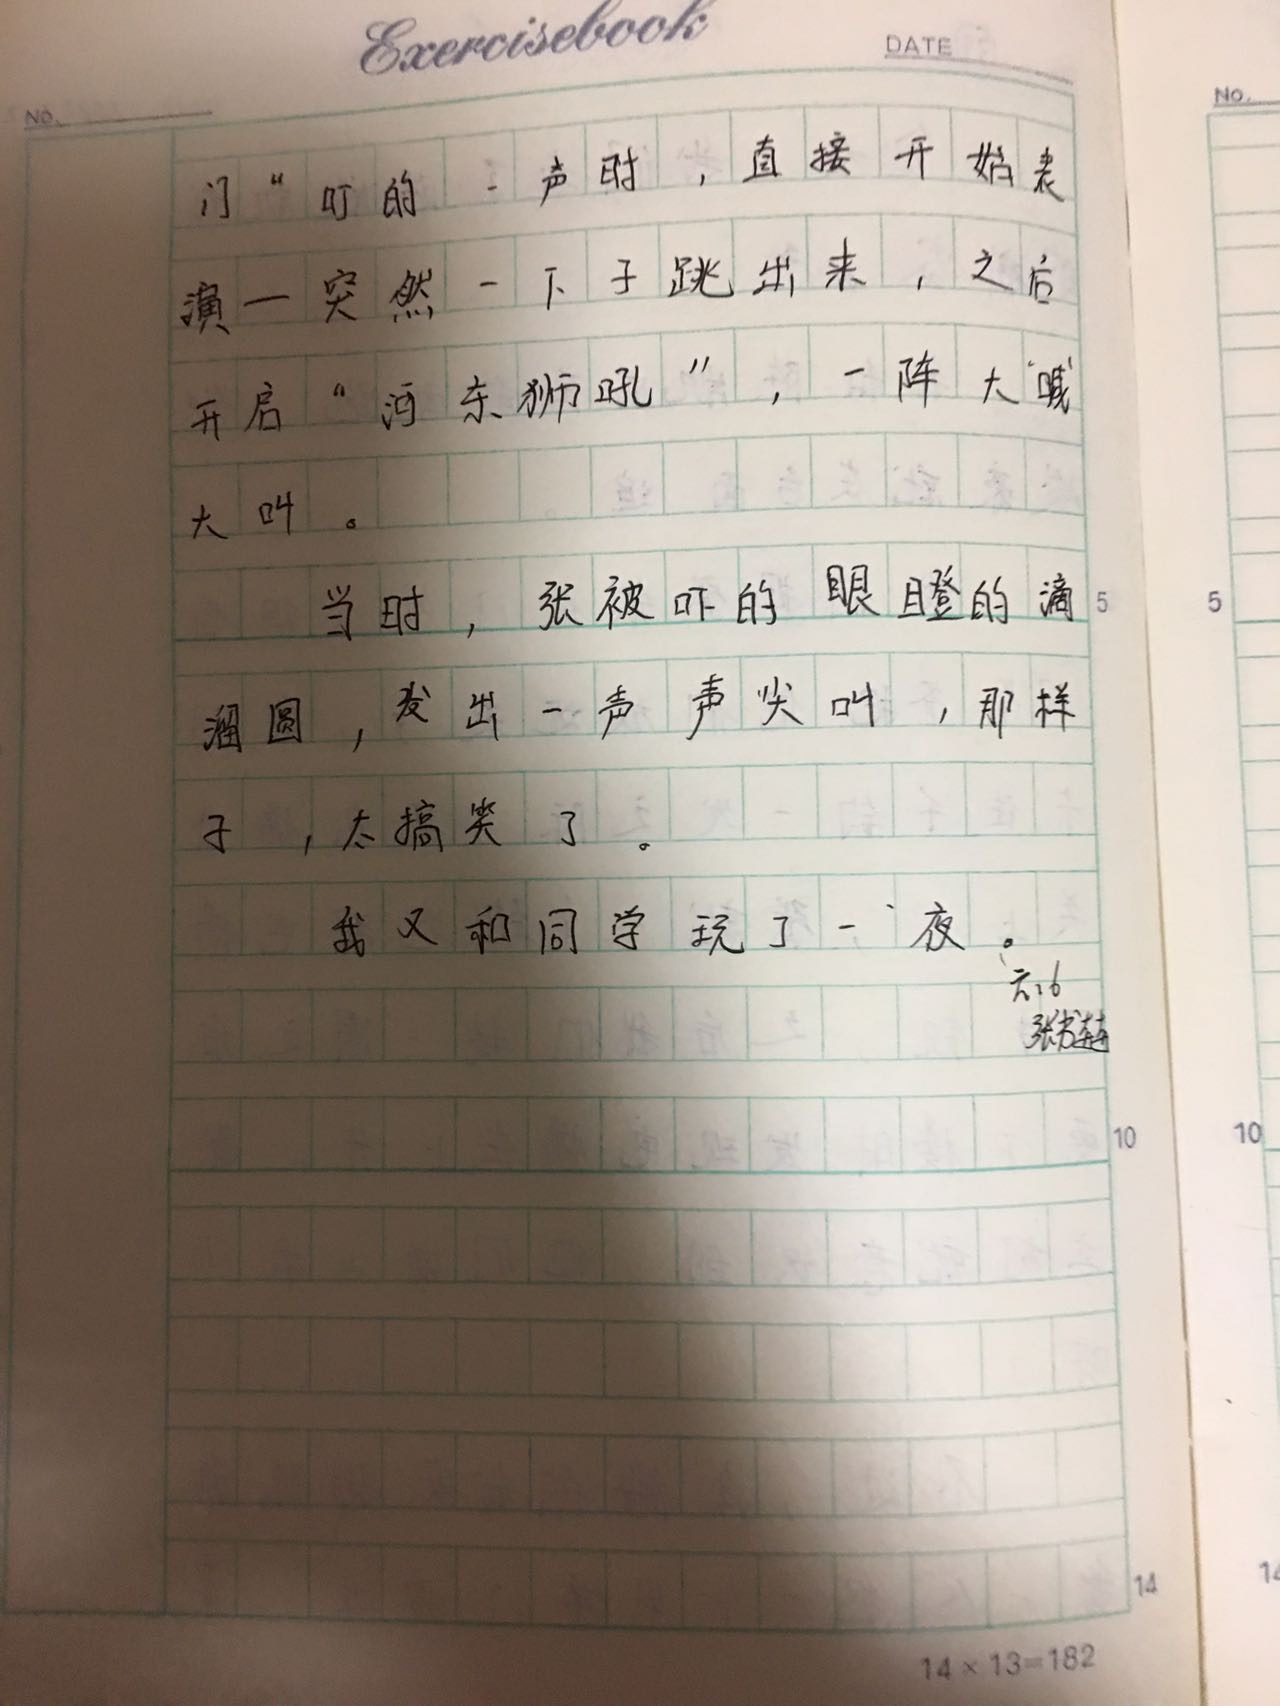 Exercisebook
DATE
No.
No.
门“叮的一声时，直接开始表
演一突然一下子跳出来，之后
开启“河东狮吼”，一阵大喊
大叫。
当时，张被吓的眼瞪的滴
溜圆，发出一声声尖叫，那样
子，太搞笑了。
我又和同学玩了一夜。
六16
张
5
5
10
10
14
14
14×13=182